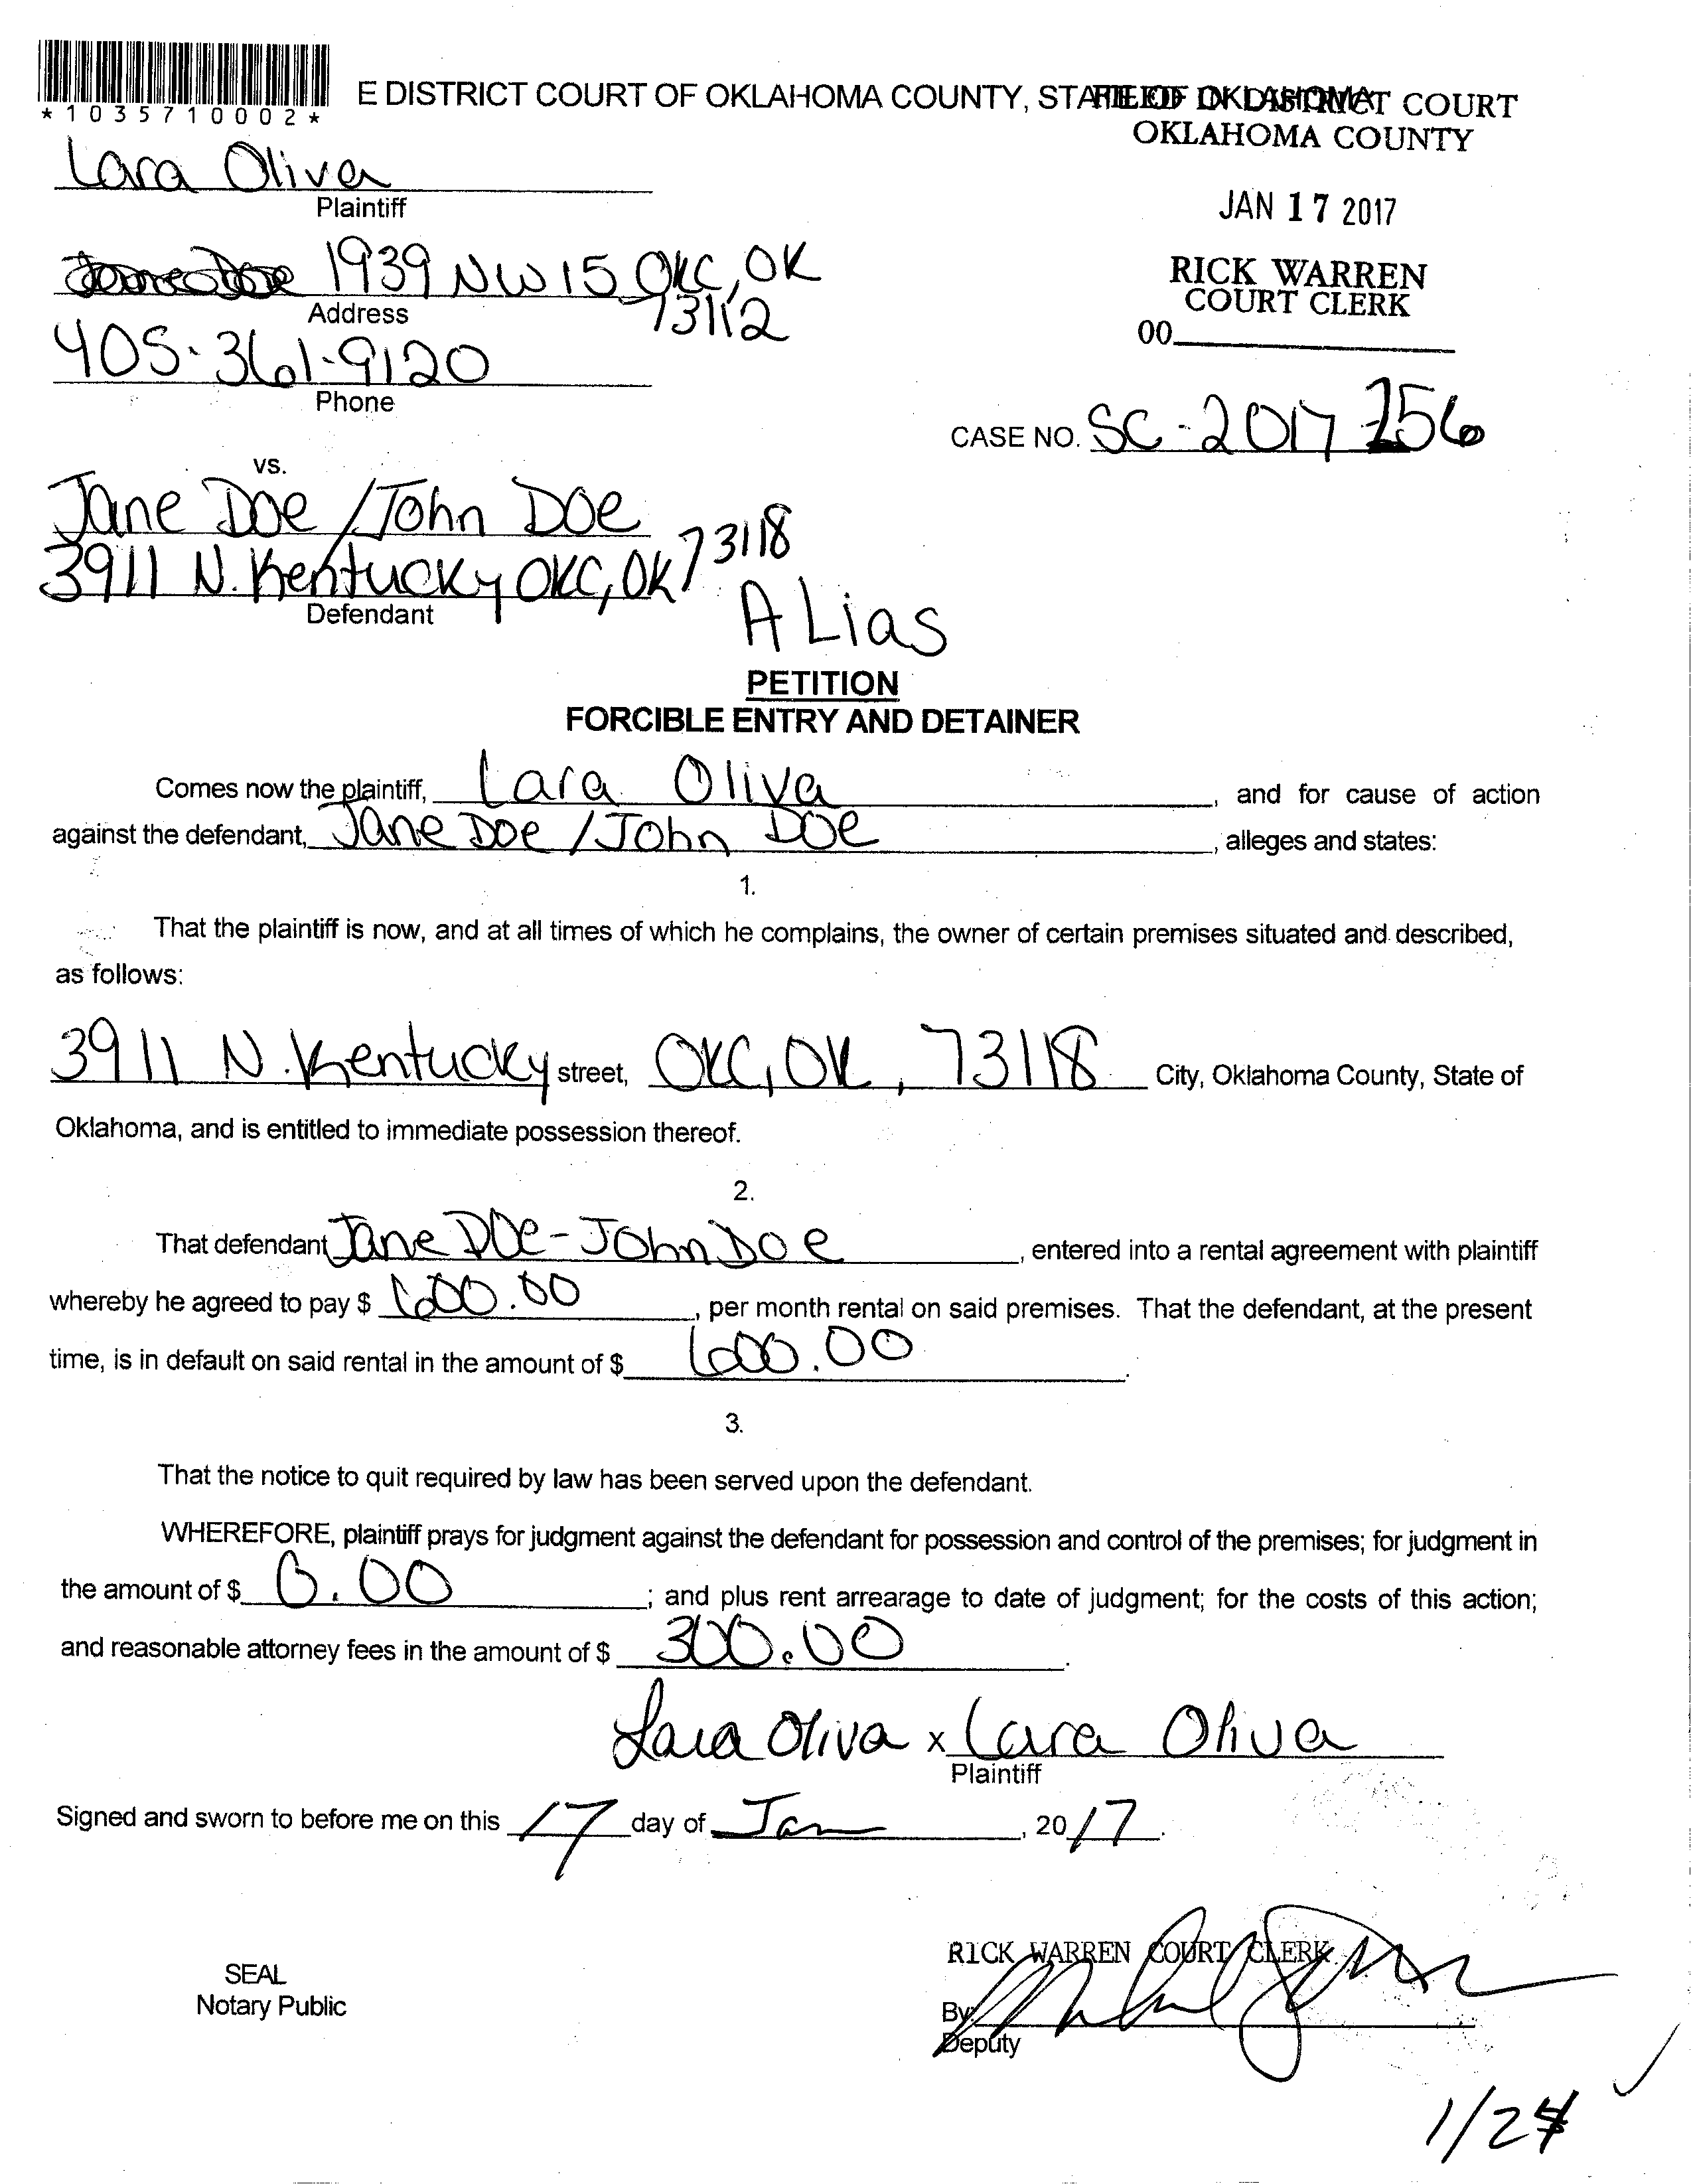 *1035710002*
E DISTRICT COURT OF OKLAHOMA COUNTY, STATE OF OKLAHOMA
FILED IN DISTRICT COURT
OKLAHOMA COUNTY
Lara Oliva
Plaintiff
JAN 17 2017
1939 NW 15 OKC, OK
73112
Address
RICK WARREN
COURT CLERK
00
405-361-9120
Phone
CASE NO. SC-2017 256
vs.
Jane Doe / John Doe
3911 N. Kentucky OKC, OK 73118
Defendant
ALias
PETITION
FORCIBLE ENTRY AND DETAINER
Comes now the plaintiff, Lara Oliva, and for cause of action
against the defendant, Jane Doe / John Doe, alleges and states:
1.
That the plaintiff is now, and at all times of which he complains, the owner of certain premises situated and described,
as follows:
3911 N. Kentucky street, OKC, OK, 73118 City, Oklahoma County, State of
Oklahoma, and is entitled to immediate possession thereof.
2.
That defendant Jane Doe - John Doe, entered into a rental agreement with plaintiff
whereby he agreed to pay $ 600.00, per month rental on said premises. That the defendant, at the present
time, is in default on said rental in the amount of $ 600.00.
3.
That the notice to quit required by law has been served upon the defendant.
WHEREFORE, plaintiff prays for judgment against the defendant for possession and control of the premises; for judgment in
the amount of $ 0.00; and plus rent arrearage to date of judgment; for the costs of this action;
and reasonable attorney fees in the amount of $ 300.00.
Lara Oliva x Lara Oliva
Plaintiff
Signed and sworn to before me on this 17 day of Jan, 2017.
RICK WARREN COURT CLERK
SEAL
Notary Public
By
Deputy
1/24